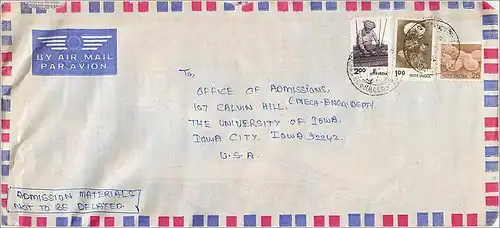 BY AIR MAIL
PAR AVION
To,
OFFICE OF ADMISSIONS,
107 CALVIN HILL, (MECH-ENGG.DEPT)
THE UNIVERSITY OF IOWA,
IOWA CITY, IOWA 52242.
U.S.A.
ADMISSION MATERIALS
NOT TO BE DELAYED.
2.00
INDIA
1.00
INDIA
25
INDIA